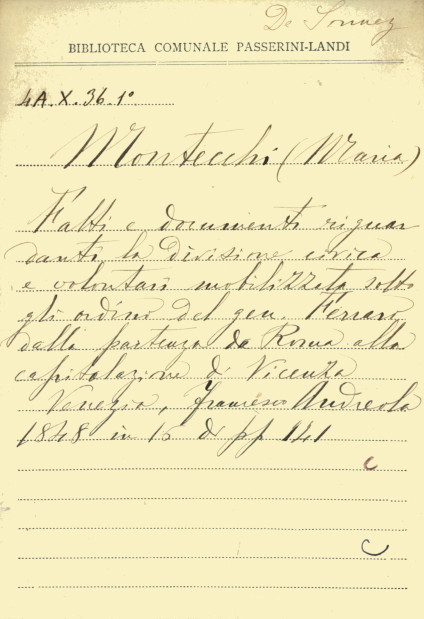 De Sonnaz
BIBLIOTECA COMUNALE PASSERINI-LANDI
4A.X.36.1º
Montecchi (Maria)
Fatti e documenti riguar
danti la divisione civica
e volontari mobilizzata sotto
gli ordini del gen. Ferrari
dalla partenza da Roma alla
capitolazione di Vicenza
Venezia, Francesco Andreola
1848 in 16 di pp 141
C
C